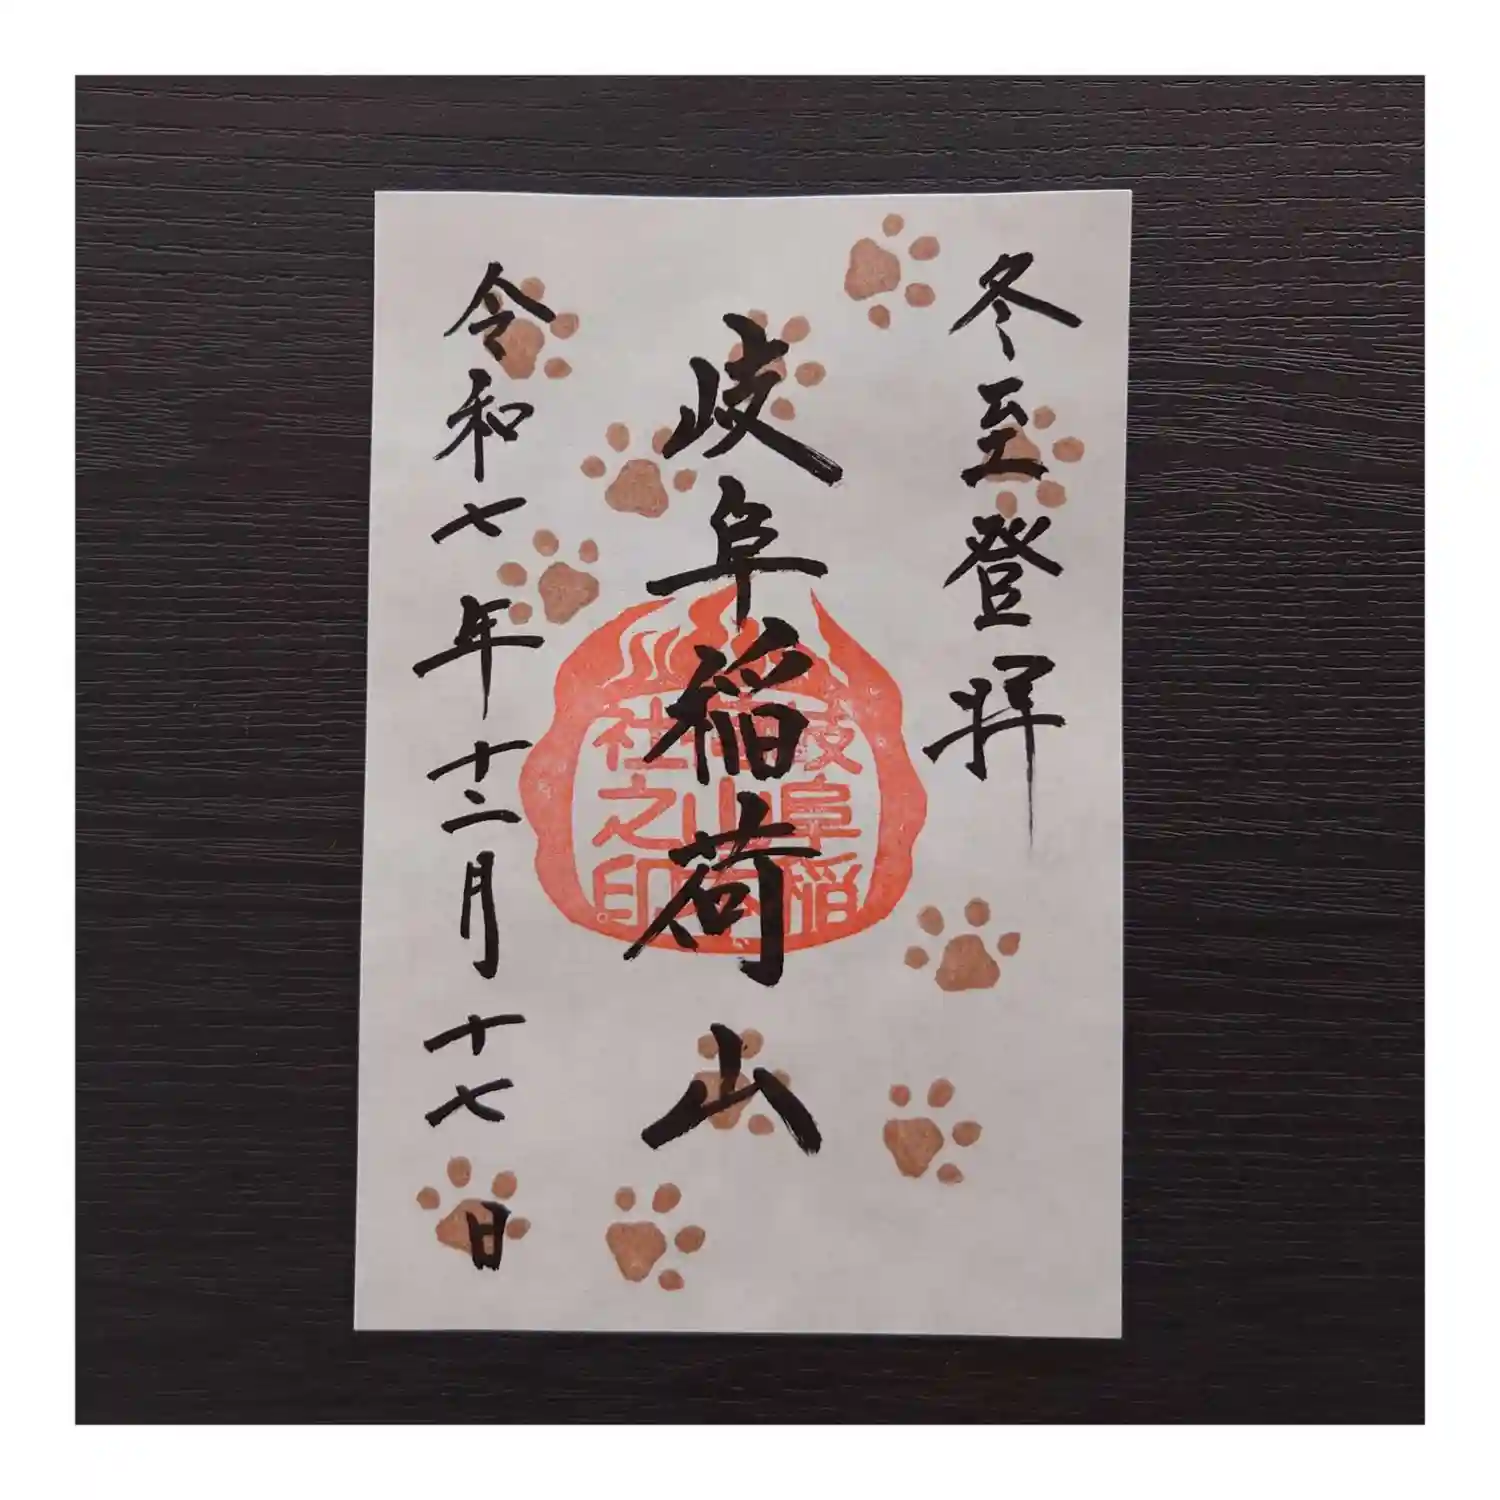 冬至登拝
岐阜稲荷山
令和七年十二月十七日
岐阜稲
山本
社之印